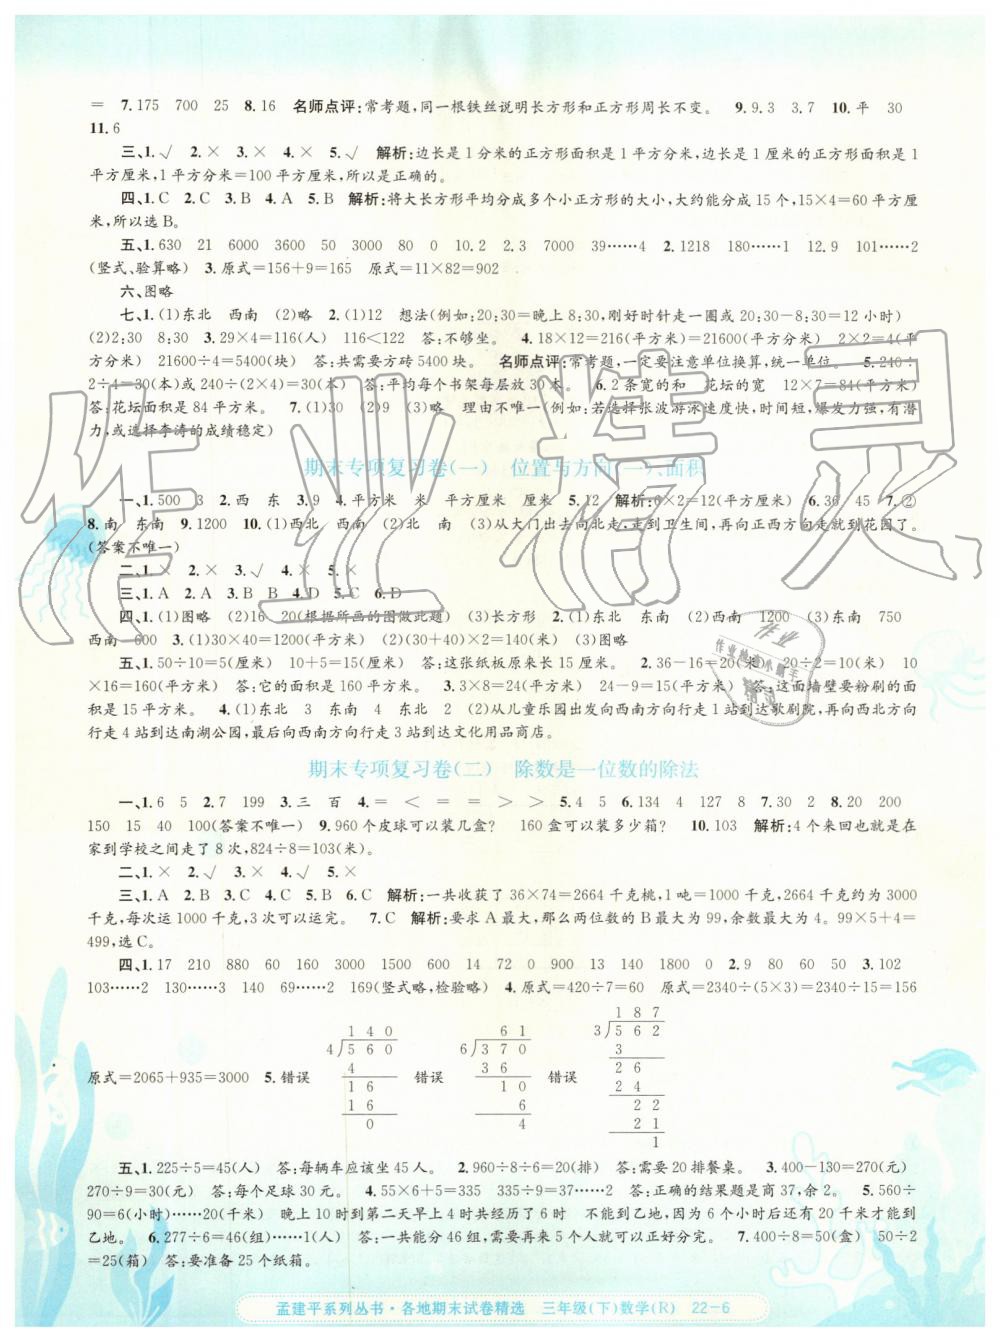 =　7.175　700　25　8.16　名师点评:常考题,同一根铁丝说明长方形和正方形周长不变。　9.9.3　3.7　10.平　30
11.6
三、1.√　2.×　3.×　4.×　5.√　解析:边长是1分米的正方形面积是1平方分米,边长是1厘米的正方形面积是1平方厘米,1平方分米=100平方厘米,所以是正确的。
四、1.C　2.C　3.B　4.A　5.B　解析:将大长方形平均分成多个小正方形的大小,大约能分成15个,15×4=60平方厘米,所以选B。
五、1.630　21　6000　3600　50　3000　80　0　10.2　2.3　7000　39……4　2.1218　180……1　12.9　101……2
(竖式、验算略)　3.原式=156+9=165　原式=11×82=902
六、图略
七、1.(1)东北　西南　(2)略　2.(1)12　想法(例如:20:30=晚上8:30,刚好时针走一圈或20:30-8:30=12小时)
(2)2:30　8:30　3.29×4=116(人)　116<122　答:不够坐。　4.18×12=216(平方米)=21600(平方分米)　2×2=4(平方分米)　21600÷4=5400(块)　答:共需要方砖5400块。　名师点评:常考题,一定要注意单位换算,统一单位。　5.240÷
2÷4=30(本)或240÷(2×4)=30(本)　答:平均每个书架每层放30本。　6.2条宽的和　花坛的宽　12×7=84(平方米)
答:花坛面积是84平方米。　7.(1)30　(2)9　(3)略　理由不唯一(例如:若选择张波游泳速度快,时间短,爆发力强,有潜力,或选择李涛的成绩稳定)
期末专项复习卷(一)　位置与方向(一)、面积
一、1.500　3　2.西　东　3.9　4.平方米　米　平方厘米　厘米　5.12　解析:6×2=12(平方厘米)　6.36　45　7.②
8.南　东南　9.1200　10.(1)西北　西南　(2)北　南　(3)从大门出去向北走,走到卫生间,再向正西方向走就到花园了。
(答案不唯一)
二、1.×　2.×　3.√　4.×　5.×
三、1.A　2.A　3.B　4.D　5.C　6.D
四、1.(1)图略　(2)16　20(根据所画的图做此题)　(3)长方形　2.(1)东北　东南　(2)西南　1200　(3)东南　750
西南　600　3.(1)30×40=1200(平方米)　(2)(30+40)×2=140(米)　(3)图略
五、1.50÷10=5(厘米)　10+5=15(厘米)　答:这张纸板原来长15厘米。　2.36-16=20(米)　20÷2=10(米)　10
×16=160(平方米)　答:它的面积是160平方米。　3.3×8=24(平方米)　24-9=15(平方米)　答:这面墙壁要粉刷的面积是15平方米。　4.(1)东北　3　东南　4　东北　2　(2)从儿童乐园出发向西南方向行走1站到达歌剧院,再向西北方向行走4站到达南湖公园,最后向西南方向行走3站到达文化用品商店。
期末专项复习卷(二)　除数是一位数的除法
一、1.6　5　2.7　199　3.三　百　4.=　<　=　=　>　>　5.4　5　6.134　4　127　8　7.30　2　8.20　200
150　15　40　100(答案不唯一)　9.960个皮球可以装几盒?　160盒可以装多少箱?　10.103　解析:4个来回也就是在家到学校之间走了8次,824÷8=103(米)。
二、1.×　2.√　3.×　4.√　5.×
三、1.A　2.B　3.C　4.C　5.B　6.C　解析:一共收获了36×74=2664千克桃,1吨=1000千克,2664千克约为3000千克,每次运1000千克,3次可以运完。　7.C　解析:要求A最大,那么两位数的B最大为99,余数最大为4。99×5+4=
499,选C。
四、1.17　210　880　60　160　3000　1500　600　14　72　0　900　13　140　1800　0　2.9　80　60　50　3.102
103……2　130……3　140　69……2　169(竖式略,检验略)　4.原式=420÷7=60　原式=2340÷(5×3)=2340÷15=156
原式=2065+935=3000　5.错误　140　4)560　4　16　16　0　错误　61　6)370　36　10　6　4　错误　187　3)562　3　26　24　22　21　1
五、1.225÷5=45(人)　答:每辆车应该坐45人。　2.960÷8÷6=20(排)　答:需要20排餐桌。　3.400-130=270(元)
270÷9=30(元)　答:每个足球30元。　4.55×6+5=335　335÷9=37……2　答:正确的结果题是商37,余2。　5.560÷
90=6(小时)……20(千米)　晚上10时到第二天早上4时共经历了6时　不能到乙地,因为6个小时后还有20千米才能到乙地。　6.277÷6=46(组)……1(人)　答:一共能分46组,需要再来5个人就可以正好分完。　7.400÷8=50(盒)　50÷2
=25(箱)　答:要准备25个纸箱。
孟建平系列丛书·各地期末试卷精选　三年级(下)数学(R)　22-6
作业精灵
作业
作业检查小助手
精灵